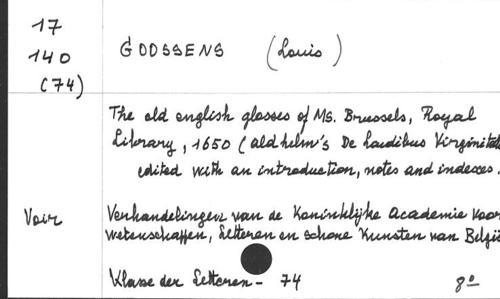 17
140
(74)
GOOSSENS (Louis)
The old english glosses of MS. Brussels, Royal
Library, 1650 (aldhelm's De Laudibus Virginitat
edited with an introduction, notes and indexes.
Voir Verhandelingen van de Koninklijke Academie voor
wetenschappen, Letteren en schone Kunsten van Belgi
Klasse der Letteren - 74 8°